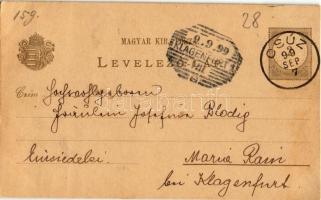 159.
28
MAGYAR KIR. POSTA
9.9.99
KLAGENFURT
CSÚZ
99
SEP
7
LEVELEZŐ-LAP
Czim Hochwohlgeboren
Fräulein Josefine Blodig
Einsiedelei
Maria Rain
bei Klagenfurt.